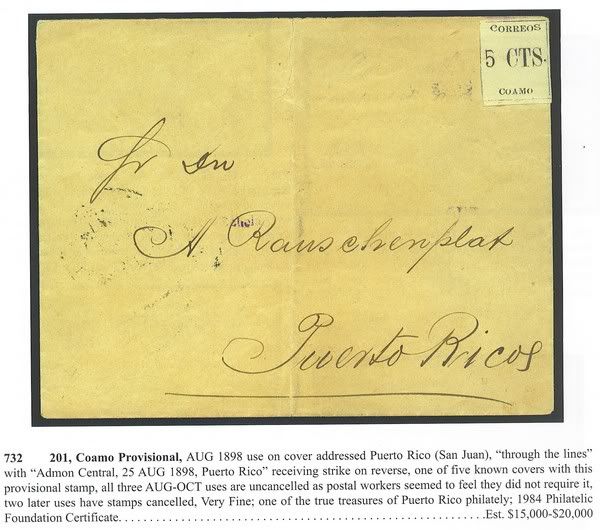 CORREOS
5 CTS.
COAMO
Sr Dn
A Rauschenplat
Puerto Rico
732 201, Coamo Provisional, AUG 1898 use on cover addressed Puerto Rico (San Juan), “through the lines”
with “Admon Central, 25 AUG 1898, Puerto Rico” receiving strike on reverse, one of five known covers with this
provisional stamp, all three AUG-OCT uses are uncancelled as postal workers seemed to feel they did not require it,
two later uses have stamps cancelled, Very Fine; one of the true treasures of Puerto Rico philately; 1984 Philatelic
Foundation Certificate. . . . . . . . . . . . . . . . . . . . . . . . . . . . . . . . . . . . . . . . . . . . . . . . . . . . . . . .Est. $15,000-$20,000